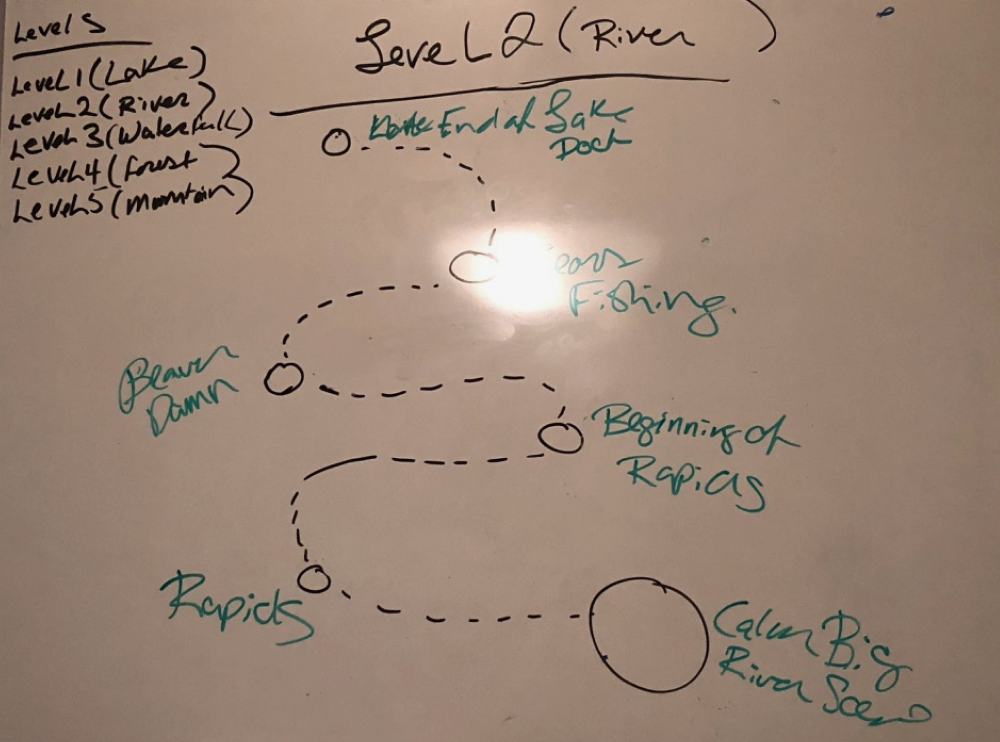 Levels
Level 1 (Lake)
Level 2 (River)
Level 3 (Waterfall)
Level 4 (Forest)
Level 5 (Mountain)
Level 2 (River)
End of Lake
Dock
Fishing.
Beaver
Damn
Beginning of
Rapids
Rapids
Calm Big
River Scene